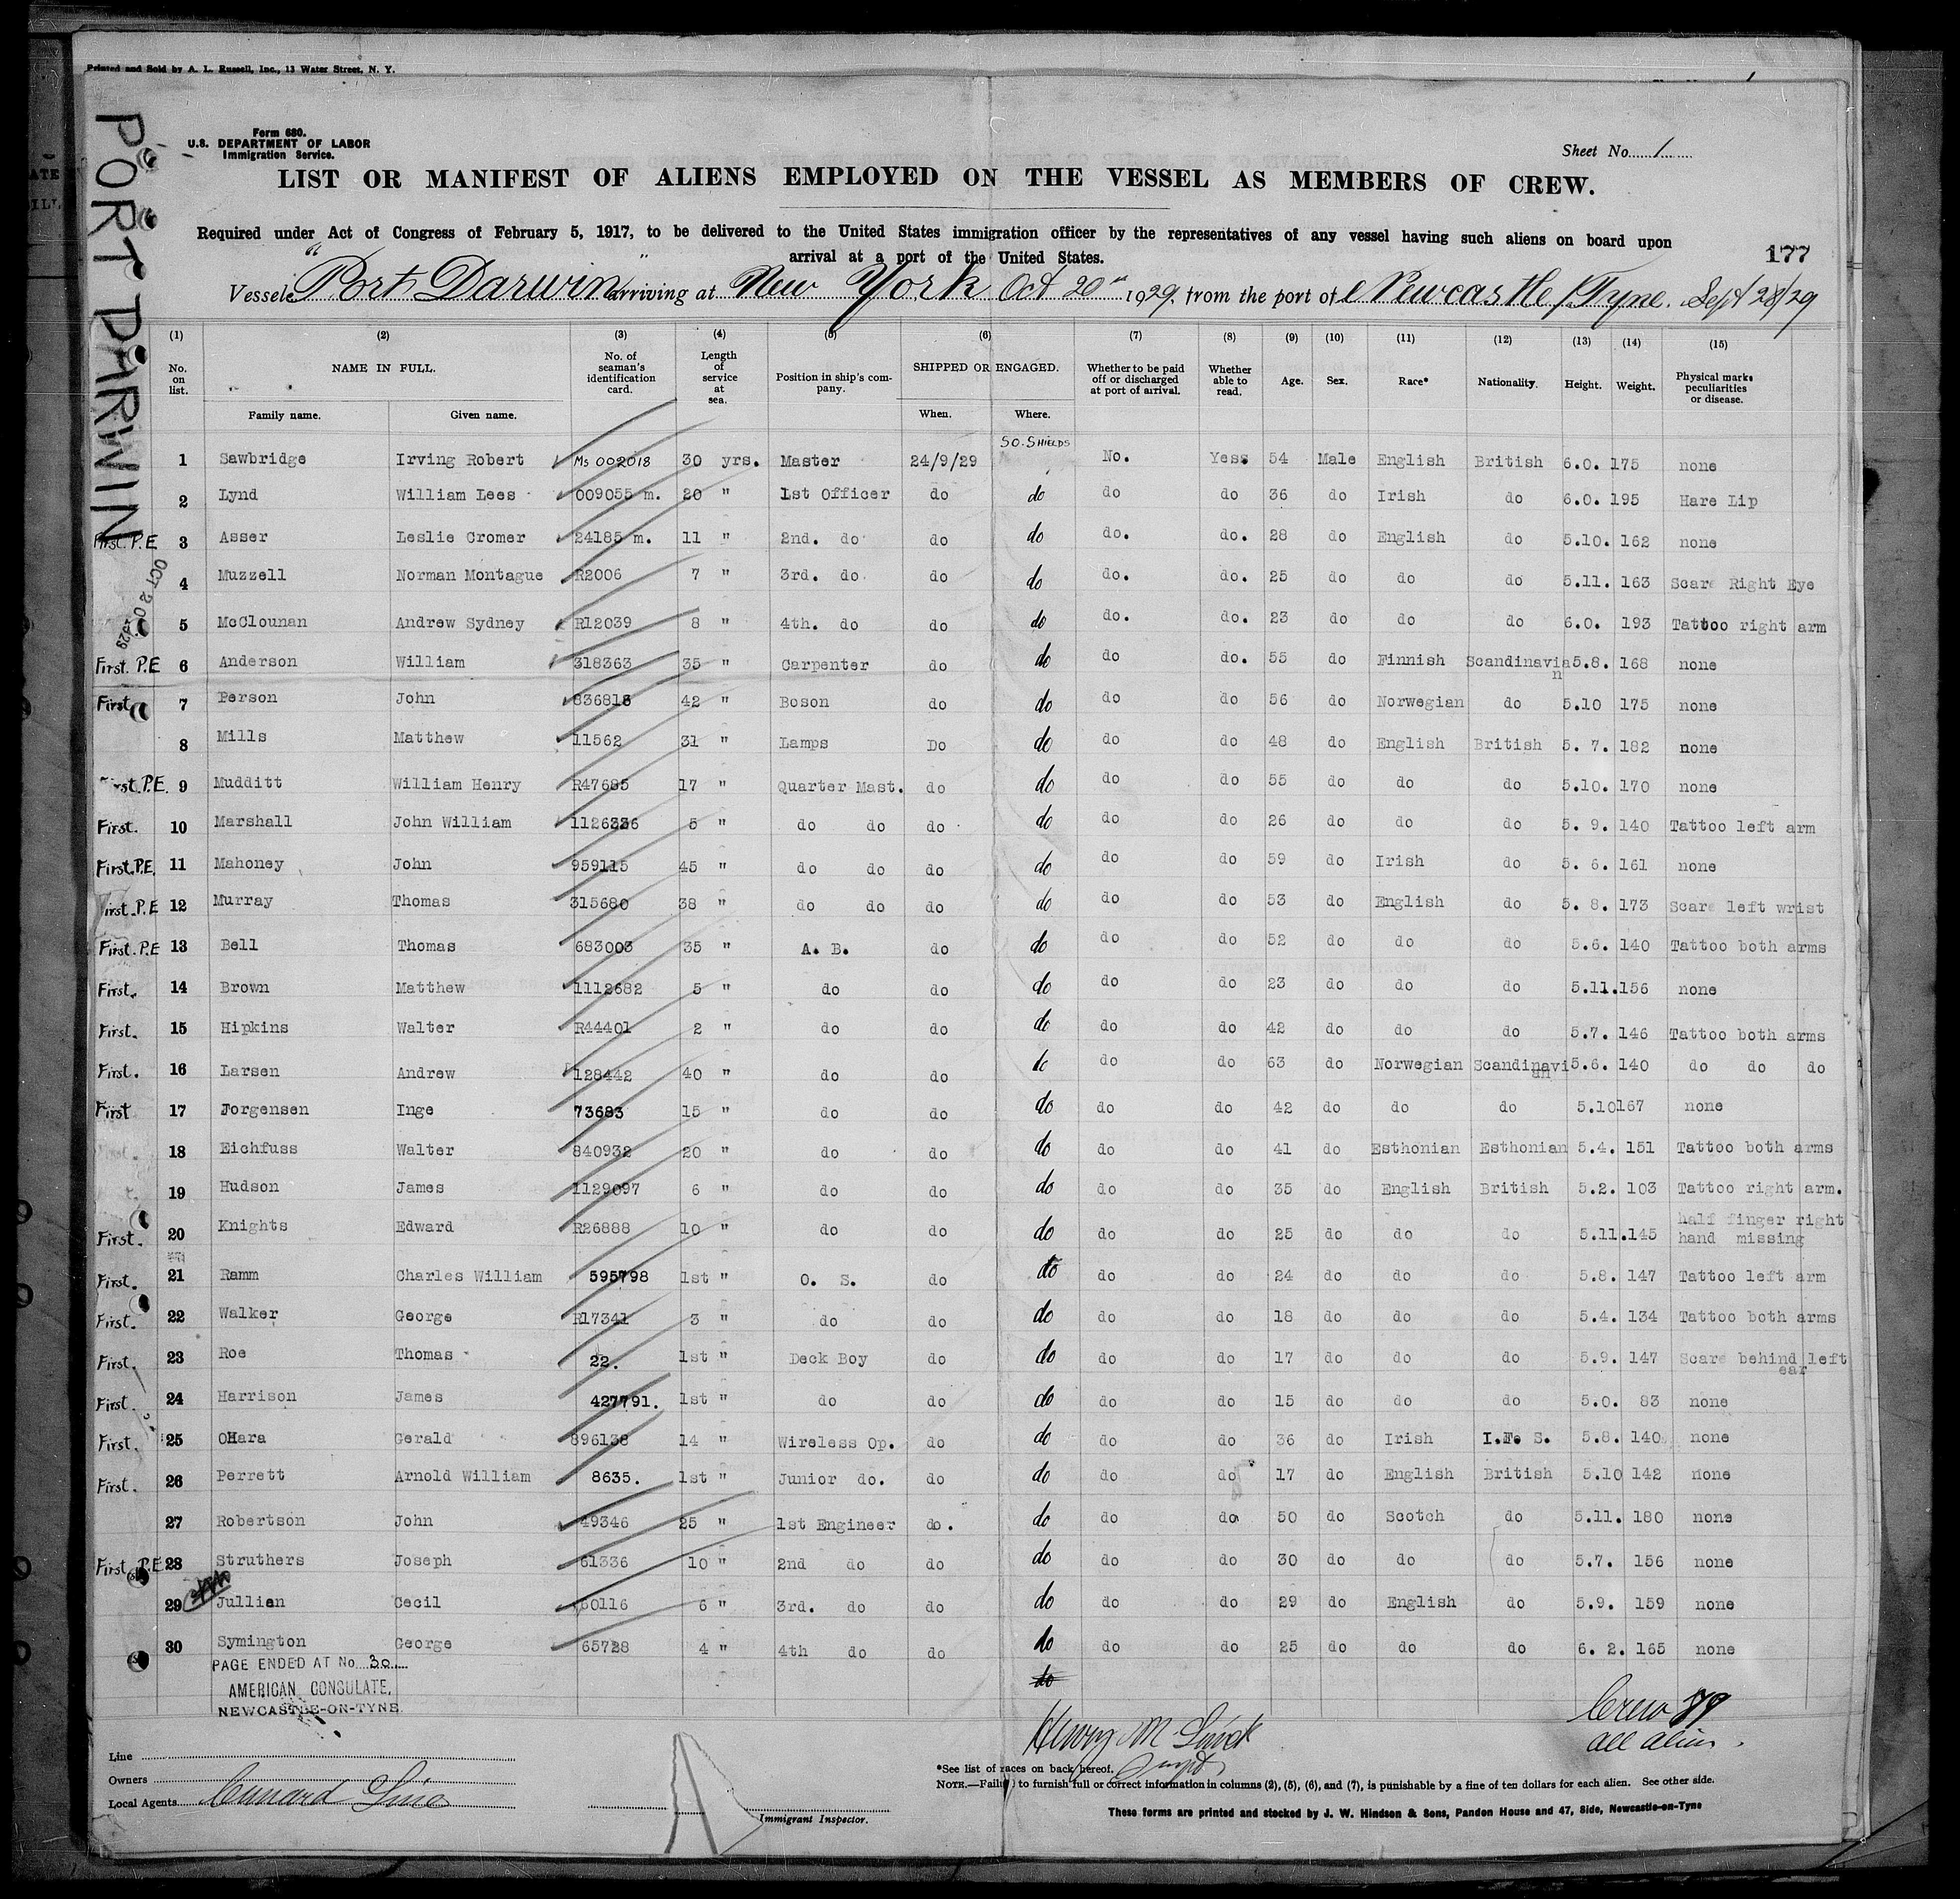 Printed and Sold by A. L. Russell, Inc., 13 Water Street, N. Y.
PORT DARWIN
Form 680.
U.S. DEPARTMENT OF LABOR
Immigration Service.
Sheet No. 1
LIST OR MANIFEST OF ALIENS EMPLOYED ON THE VESSEL AS MEMBERS OF CREW.
Required under Act of Congress of February 5, 1917, to be delivered to the United States immigration officer by the representatives of any vessel having such aliens on board upon
arrival at a port of the United States.
177
Vessel "Port Darwin" arriving at New York Oct 20th 1929, from the port of Newcastle/Tyne. Sept/28/29
(1) (2) (3) (4) (5) (6) (7) (8) (9) (10) (11) (12) (13) (14) (15)
No. on list. NAME IN FULL. No. of seaman's identification card. Length of service at sea. Position in ship's company. SHIPPED OR ENGAGED. Whether to be paid off or discharged at port of arrival. Whether able to read. Age. Sex. Race* Nationality. Height. Weight. Physical marks peculiarities or disease.
Family name. Given name. When. Where.
SO. SHIELDS
1 Sawbridge Irving Robert Ms 002018 30 yrs. Master 24/9/29 No. Yes. 54 Male English British 6.0. 175 none
2 Lynd William Lees 009055 m. 20 " 1st Officer do do do do 36 do Irish do 6.0. 195 Hare Lip
First. P.E 3 Asser Leslie Cromer 24185 m. 11 " 2nd. do do do do. do. 28 do English do 5.10. 162 none
4 Muzzell Norman Montague R2006 7 " 3rd. do do do do. do. 25 do do do 5.11. 163 Scar Right Eye
OCT 20 1929
5 McClounan Andrew Sydney R12039 8 " 4th. do do do do. do. 23 do do do 6.0. 193 Tattoo right arm
First. P.E 6 Anderson William 318363 35 " Carpenter do do do do. 55 do Finnish Scandinavian 5.8. 168 none
First 7 Person John 836818 42 " Boson do do do do 56 do Norwegian do 5.10 175 none
8 Mills Matthew 11562 31 " Lamps Do do do do 48 do English British 5. 7. 182 none
First.P.E. 9 Mudditt William Henry R47685 17 " Quarter Mast. do do do do 55 do do do 5.10. 170 none
First. 10 Marshall John William 1126336 5 " do do do do do do 26 do do do 5. 9. 140 Tattoo left arm
First.P.E. 11 Mahoney John 959115 45 " do do do do do do 59 do Irish do 5. 6. 161 none
First.P.E 12 Murray Thomas 315680 38 " do do do do do do 53 do English do 5. 8. 173 Scar left wrist
First.P.E 13 Bell Thomas 683003 35 " A. B. do do do do 52 do do do 5.6. 140 Tattoo both arms
First. 14 Brown Matthew 1112682 5 " do do do do do 23 do do do 5.11. 156 none
First. 15 Hipkins Walter R44401 2 " do do do do do 42 do do do 5.7. 146 Tattoo both arms
First. 16 Larsen Andrew 128442 40 " do do do do do 63 do Norwegian Scandinavian 5.6. 140 do do do
First 17 Jorgensen Inge 73683 15 " do do do do do 42 do do do 5.10 167 none
18 Eichfuss Walter 840932 20 " do do do do do 41 do Esthonian Esthonian 5.4. 151 Tattoo both arms
19 Hudson James 1129097 6 " do do do do do 35 do English British 5.2. 103 Tattoo right arm.
First. 20 Knights Edward R26888 10 " do do do do do 25 do do do 5.11. 145 half finger right hand missing
First. 21 Ramm Charles William 595798 1st " O. S. do do do do 24 do do do 5.8. 147 Tattoo left arm
First. 22 Walker George R17341 3 " do do do do do 18 do do do 5.4. 134 Tattoo both arms
First. 23 Roe Thomas 22. 1st " Deck Boy do do do do 17 do do do 5.9. 147 Scar behind left ear
First. 24 Harrison James 427791. 1st " do do do do do 15 do do do 5.0. 83 none
First. 25 OHara Gerald 896138 14 " Wireless Op. do do do do 36 do Irish I.F. S. 5.8. 140 none
First. 26 Perrett Arnold William 8635. 1st " Junior do. do do do do 17 do English British 5.10 142 none
27 Robertson John 49346 25 " 1st Engineer do. do do do 50 do Scotch do 5.11. 180 none
First P.E 28 Struthers Joseph 61336 10 " 2nd do do do do do 30 do do do 5.7. 156 none
29 Jullian Cecil 60116 6 " 3rd. do do do do do 29 do English do 5.9. 159 none
30 Symington George 65728 4 " 4th do do do do do 25 do do do 6. 2. 165 none
PAGE ENDED AT No 30
do
AMERICAN CONSULATE,
NEWCASTLE-ON-TYNE
Crew 89
all alien.
Line
Owners
Local Agents Cunard Line
Immigrant Inspector.
*See list of races on back hereof.
NOTE.—Failure to furnish full or correct information in columns (2), (5), (6), and (7), is punishable by a fine of ten dollars for each alien. See other side.
These forms are printed and stocked by J. W. Hindson & Sons, Pandon House and 47, Side, Newcastle-on-Tyne